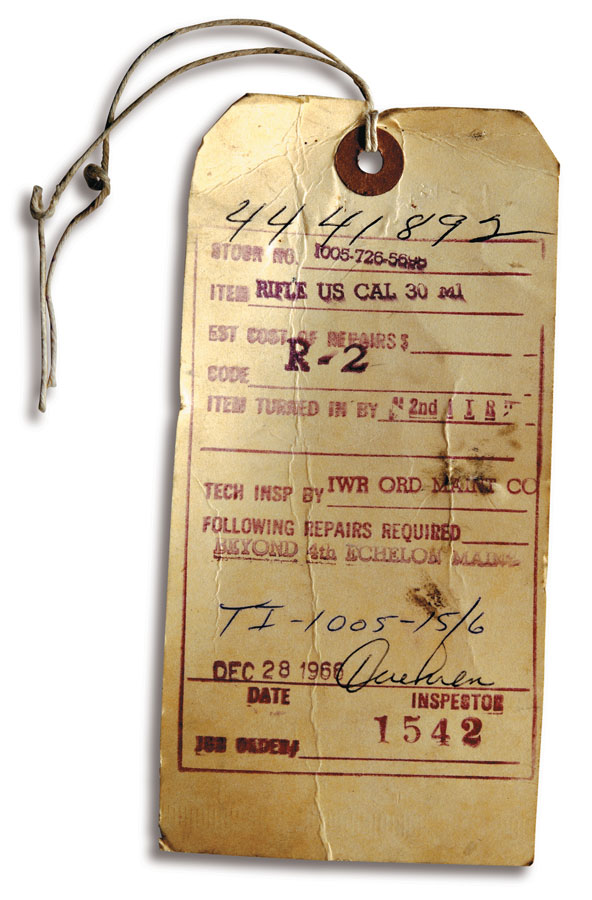 4441892
STOCK NO. 1005-726-5655
ITEM RIFLE US CAL 30 M1
EST COST OF REPAIRS $
CODE R-2
ITEM TURNED IN BY 2nd
TECH INSP BY IWR ORD MAINT CO
FOLLOWING REPAIRS REQUIRED
BEYOND 4th ECHELON MAINT
TI-1005-15/6
DEC 28 1966
DATE INSPECTOR
1542
JOB ORDER#